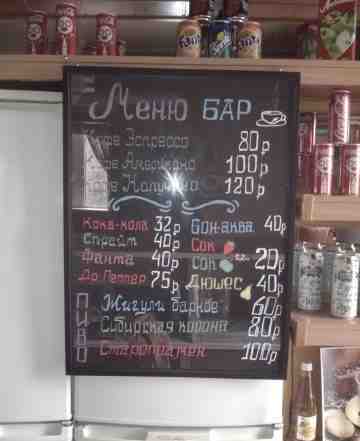 Меню БАР
Кофе Эспрессо 80р
Кофе Американо 100р
Кофе Капучино 120р
Кока-кола 32р Бон-аква 40р
Спрайт 40р Сок
Фанта 40р Сок 0,2 20р
Др. Пеппер 75р Дюшес 40р
ПИВО
Жигули барное 60р
Сибирская корона 80р
Старопрамен 100р